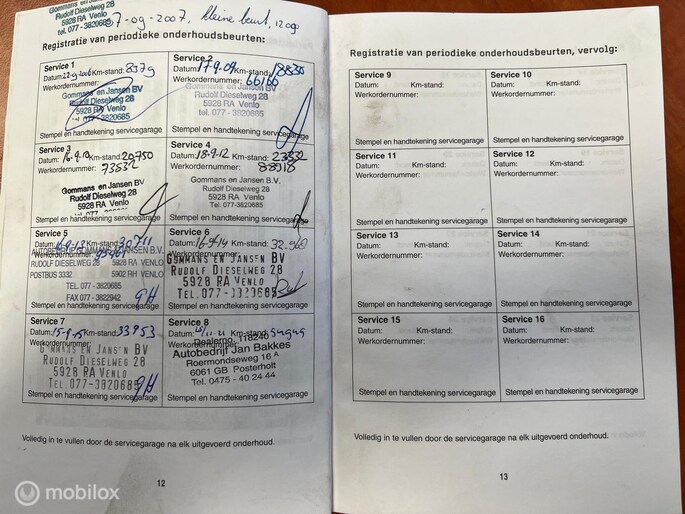 Gommans en Jansen BV
Rudolf Dieselweg 28
5928 RA Venlo
tel. 077-3820685
7-09-2007, kleine beurt,
Registratie van periodieke onderhoudsbeurten:
Service 1
Datum: Km-stand: 8379
Werkordernummer:
Gommans en Jansen BV
Rudolf Dieselweg 28
5928 RA Venlo
tel. 077-3820685
Stempel en handtekening servicegarage
Service 2
Datum: 17-9-09 Km-stand:
Werkordernummer: 66166
Gommans en Jansen BV
Rudolf Dieselweg 28
5928 RA Venlo
tel. 077-3820685
Stempel en handtekening servicegarage
Service 3
Datum: Km-stand: 20750
Werkordernummer: 73532
Gommans en Jansen BV
Rudolf Dieselweg 28
5928 RA Venlo
tel. 077-3820685
Stempel en handtekening servicegarage
Service 4
Datum: 18-9-12 Km-stand: 23532
Werkordernummer: 88918
Gommans en Jansen B.V.
Rudolf Dieselweg 28
5928 RA Venlo
tel. 077-3820685
Stempel en handtekening servicegarage
Service 5
Datum: 16-9-13 Km-stand: 30711
Werkordernummer:
RUDOLF DIESELWEG 28 5928 RA VENLO
POSTBUS 3332 5902 RH VENLO
TEL. 077 - 3820685
FAX 077-3822942
Stempel en handtekening servicegarage
Service 6
Datum: 16-9-14 Km-stand: 32.960
Werkordernummer:
GOMMANS EN JANSEN BV
RUDOLF DIESELWEG 28
5928 RA VENLO
TEL. 077-3820685
Stempel en handtekening servicegarage
Service 7
Datum: 15-9-15 Km-stand: 33953
Werkordernummer:
GOMMANS EN JANS'N BV
RUDOLF DIESELWEG 28
5928 RA VENLO
TEL. 077-3820685
Stempel en handtekening servicegarage
Service 8
Datum: Km-stand:
Werkordernummer:
Dealernr. 118240
Autobedrijf Jan Bakkes
Roermondseweg 16 A
6061 GB Posterholt
Tel. 0475 - 40 24 44
Stempel en handtekening servicegarage
Volledig in te vullen door de servicegarage na elk uitgevoerd onderhoud.
12
Registratie van periodieke onderhoudsbeurten, vervolg:
Service 9
Datum: Km-stand:
Werkordernummer:
Stempel en handtekening servicegarage
Service 10
Datum: Km-stand:
Werkordernummer:
Stempel en handtekening servicegarage
Service 11
Datum: Km-stand:
Werkordernummer:
Stempel en handtekening servicegarage
Service 12
Datum: Km-stand:
Werkordernummer:
Stempel en handtekening servicegarage
Service 13
Datum: Km-stand:
Werkordernummer:
Stempel en handtekening servicegarage
Service 14
Datum: Km-stand:
Werkordernummer:
Stempel en handtekening servicegarage
Service 15
Datum: Km-stand:
Werkordernummer:
Stempel en handtekening servicegarage
Service 16
Datum: Km-stand:
Werkordernummer:
Stempel en handtekening servicegarage
Volledig in te vullen door de servicegarage na elk uitgevoerd onderhoud.
13
mobilox